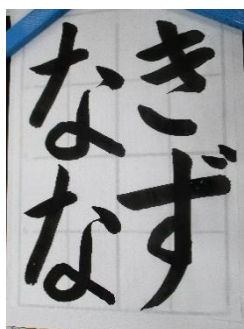 きず
なな